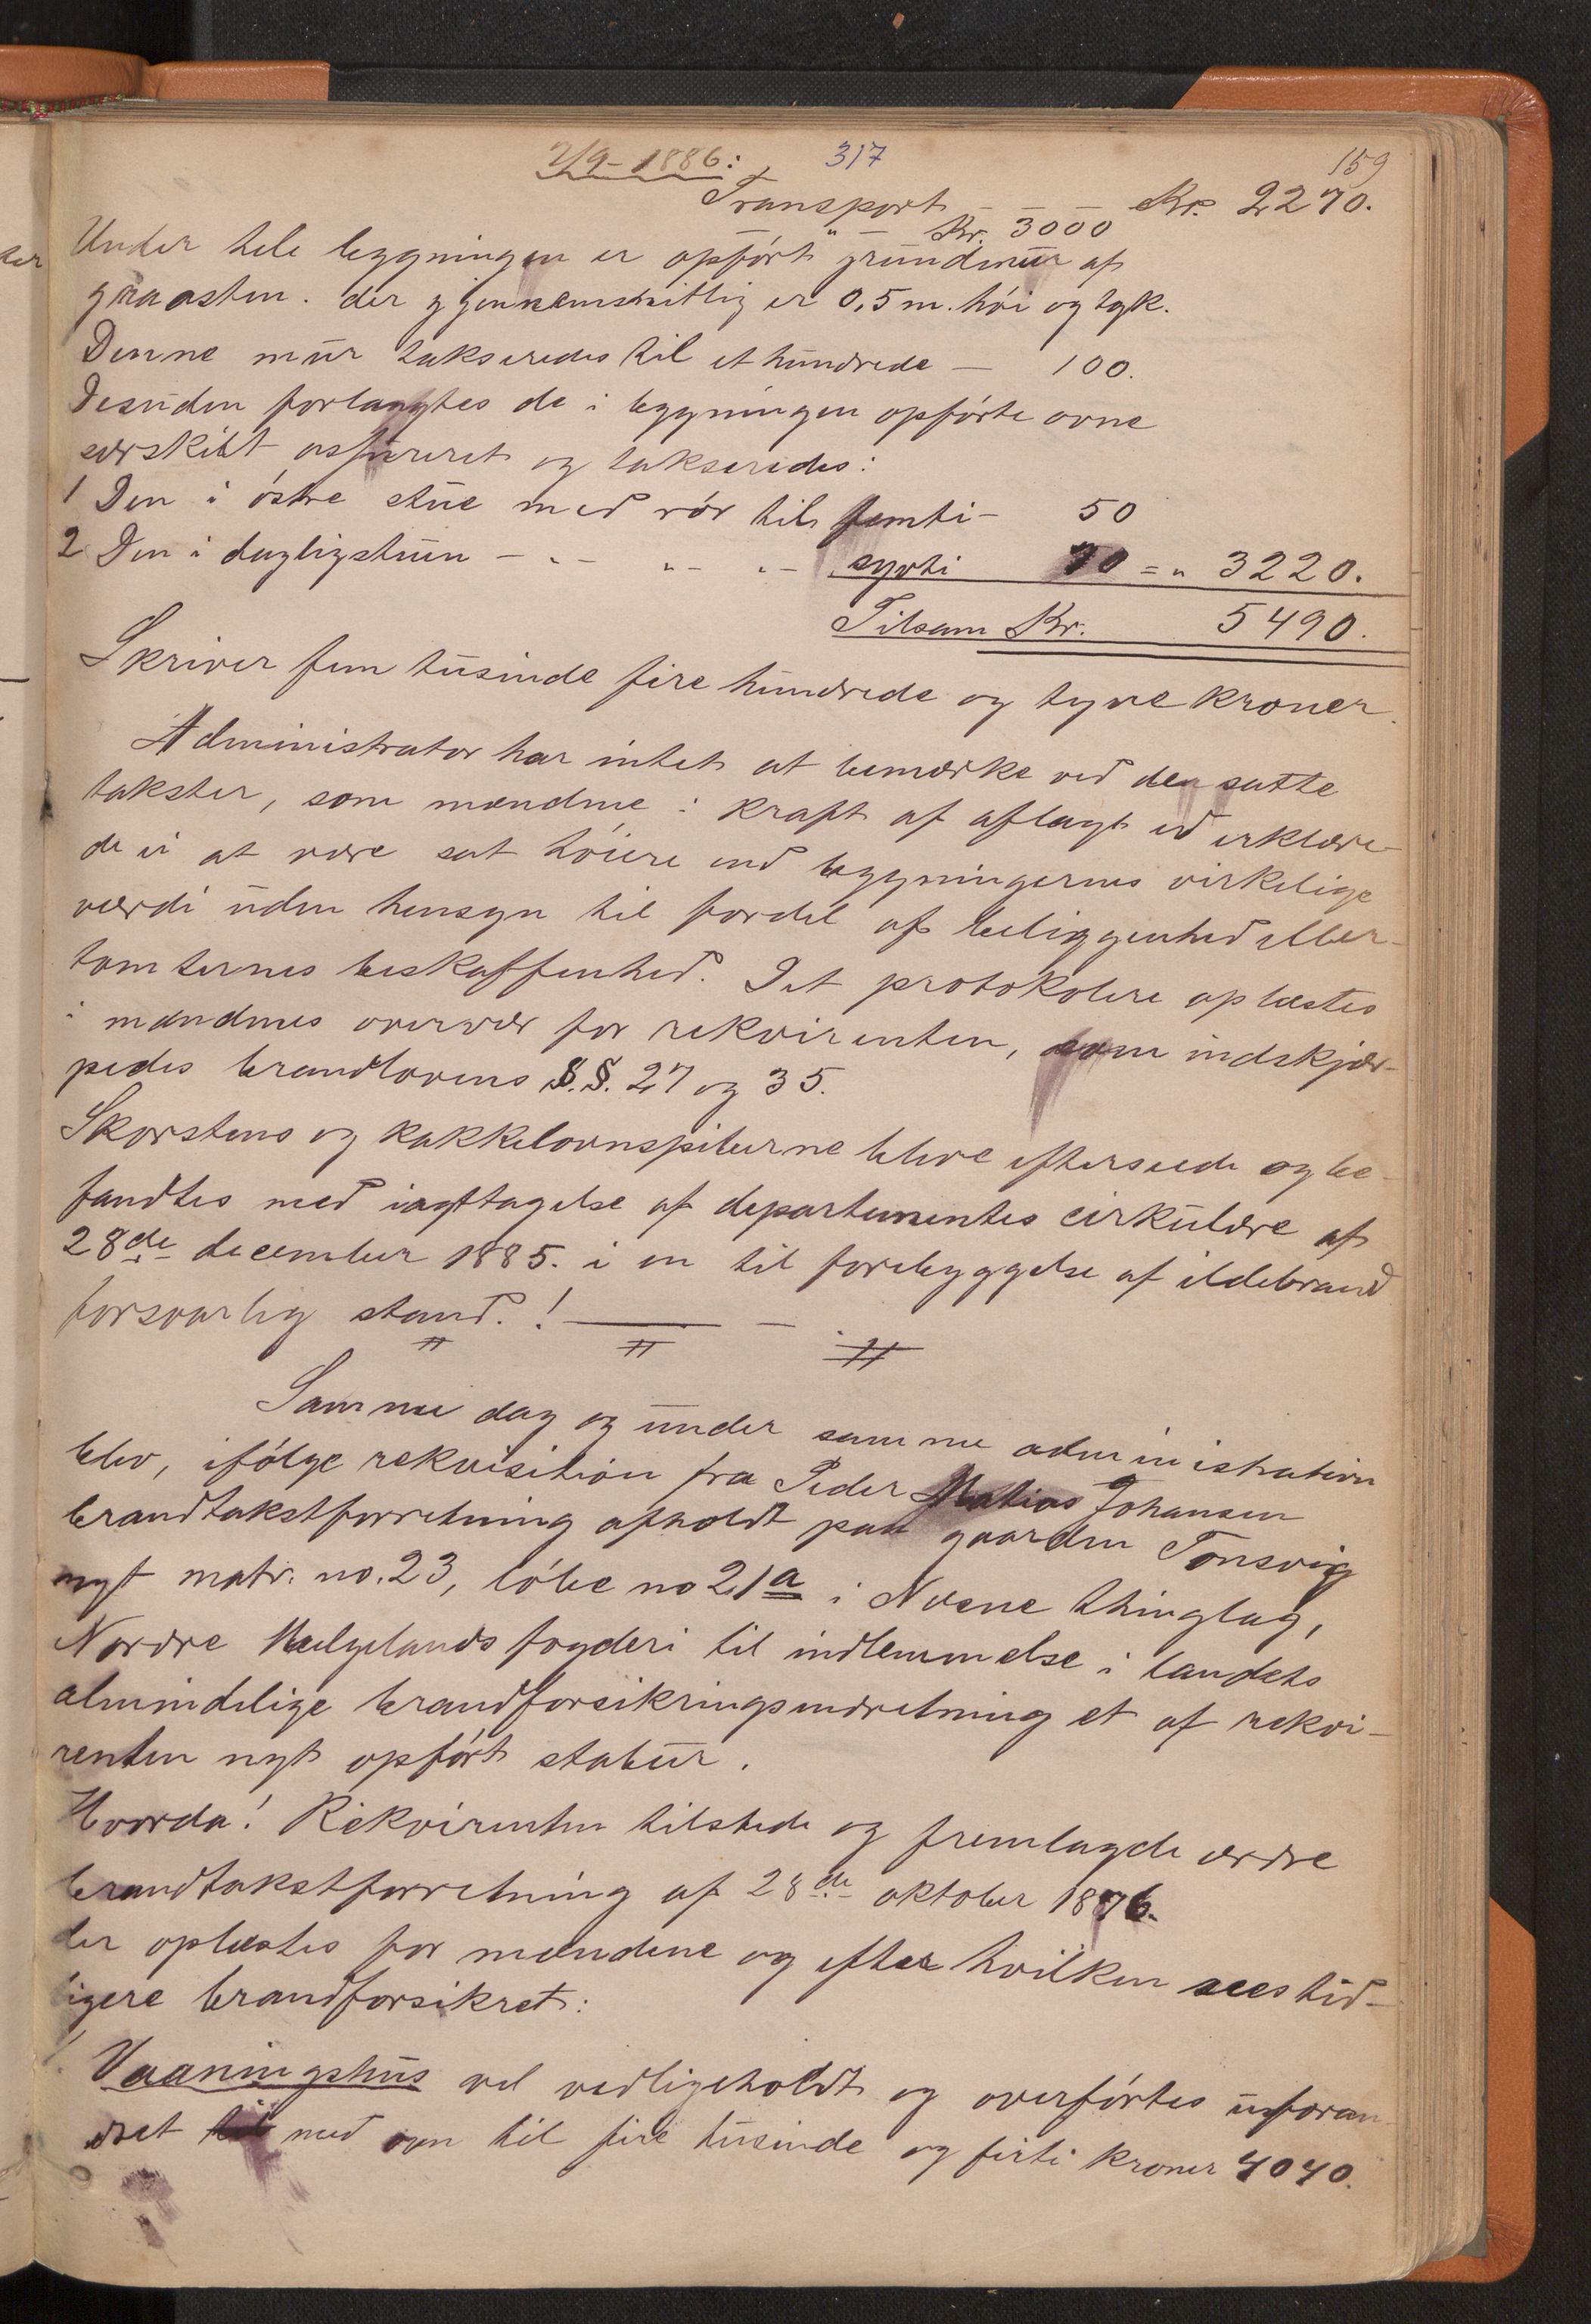 2/9-1886: 317 159
Transport — — — Kr. 2270.
" — Kr. 3000
Under hele bygningen er opført grundmur af
graasten. der gjennemsnittlig er 0,5 m. høi og tyk.
Denne mur takseredes til et hundrede — 100.
Desuden forlangtes de i bygningen opførte ovne
særskilt assureret og takseredes:
1 Den i østre stue med rør til femti — 50
2 Den i dagligstuen — " — " — " — sytti 70 = " 3220.
Tilsam Kr. 5490.
Skriver fem tusinde fire hundrede og tyve kroner.
Administrator har intet at bemærke ved den satte
takster, som mændene i kraft af aflagt ed erklære-
de ei at være sat høiere end bygningernes virkelige
værdi uden hensyn til fordel af beliggenhed eller
tomternes beskaffenhed. Det protokolere oplæstes
i mændenes overvær for rekvirenten, som indskjær-
pedes brandlovens §.§. 27 og 35.
Skorstens og kakkelovnspiberne bleve efterseede og be-
fandtes med iagttagelse af departementes cirkulære af
28de december 1885. i en til forebyggelse af ildebrand
forsvarlig stand.!
Samme dag og under samme administration
blev, ifølge rekvisition fra Peder Matias Johansen
brandtakstforretning afholdt paa gaarden Tonsvig
nyt matr. no. 23, løbe no 21a i Næsne thinglag,
Nordre Helgelands fogderi til indlemmelse i landets
almindelige brandforsikringsindretning et af rekvi-
renten nyt opført stabur.
Hvorda! Rekvirenten tilstede og fremlagde ældre
brandtakstforretning af 28de oktober 1876.
der oplæstes for mændene og efter hvilken sees tid-
ligere brandforsikret:
1. Vaaningshus vel vedligeholdt og overførtes uforan-
dret med ovn til fire tusinde og firti kroner 4040.